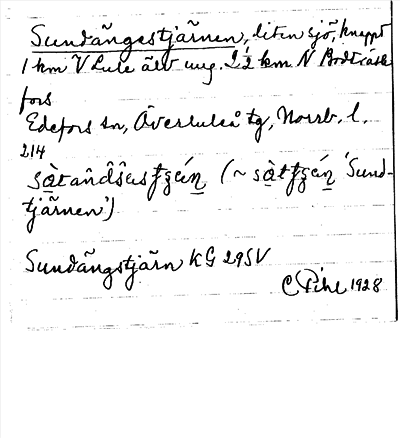 Sundängestjärnen, liten sjö, knappt
1 km V Lule älv ung. 2½ km N Bodträsk
fors
Edefors sn, Överluleå tg, Norrb. l.
214
(~ 'Sund-
tjärnen')
Sundängstjärn KG 29SV
C Pihl 1928